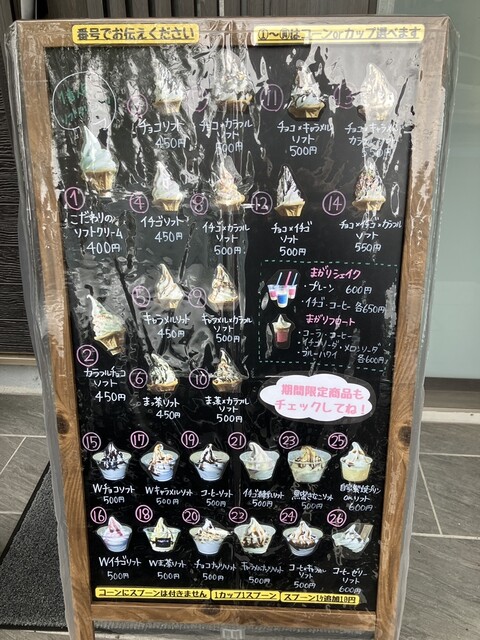 番号でお伝えください
①〜⑭はコーンorカップ選べます
チョコソフト
450円
チョコ×カラフル
ソフト
500円
11
チョコ×キャラメル
ソフト
500円
チョコ×キャラメル×
1
こだわりの
ソフトクリーム
400円
4
イチゴソフト
450円
8
イチゴ×カラフル
ソフト
500円
12
チョコ×イチゴ
ソフト
500円
14
チョコ×イチゴ×カラフル
ソフト
550円
2
カラフルチョコ
ソフト
450円
5
キャラメルソフト
450円
9
キャラメル×カラフル
ソフト
500円
6
まっ茶ソフト
450円
10
まっ茶×カラフル
ソフト
500円
まがりシェイク
・プレーン 600円
・イチゴ・コーヒー 各650円
まがりフロート
・コーラ・コーヒー
イチゴソーダ・メロンソーダ
・ブルーハワイ
各600円
期間限定商品も
チェックしてね!
15
Wチョコソフト
500円
17
Wキャラメルソフト
500円
19
コーヒーソフト
500円
21
イチゴ練乳ソフト
500円
23
黒蜜きなこソフト
500円
25
自家製焼プリン
onソフト
600円
16
Wイチゴソフト
500円
18
Wまっ茶ソフト
500円
20
チョコナッツソフト
500円
22
キャラメルナッツソフト
500円
24
コーヒー×キャラメル
ソフト
500円
26
コーヒーゼリー
ソフト
600円
コーンにスプーンは付きません
1カップ1スプーン
スプーン1ケ追加10円